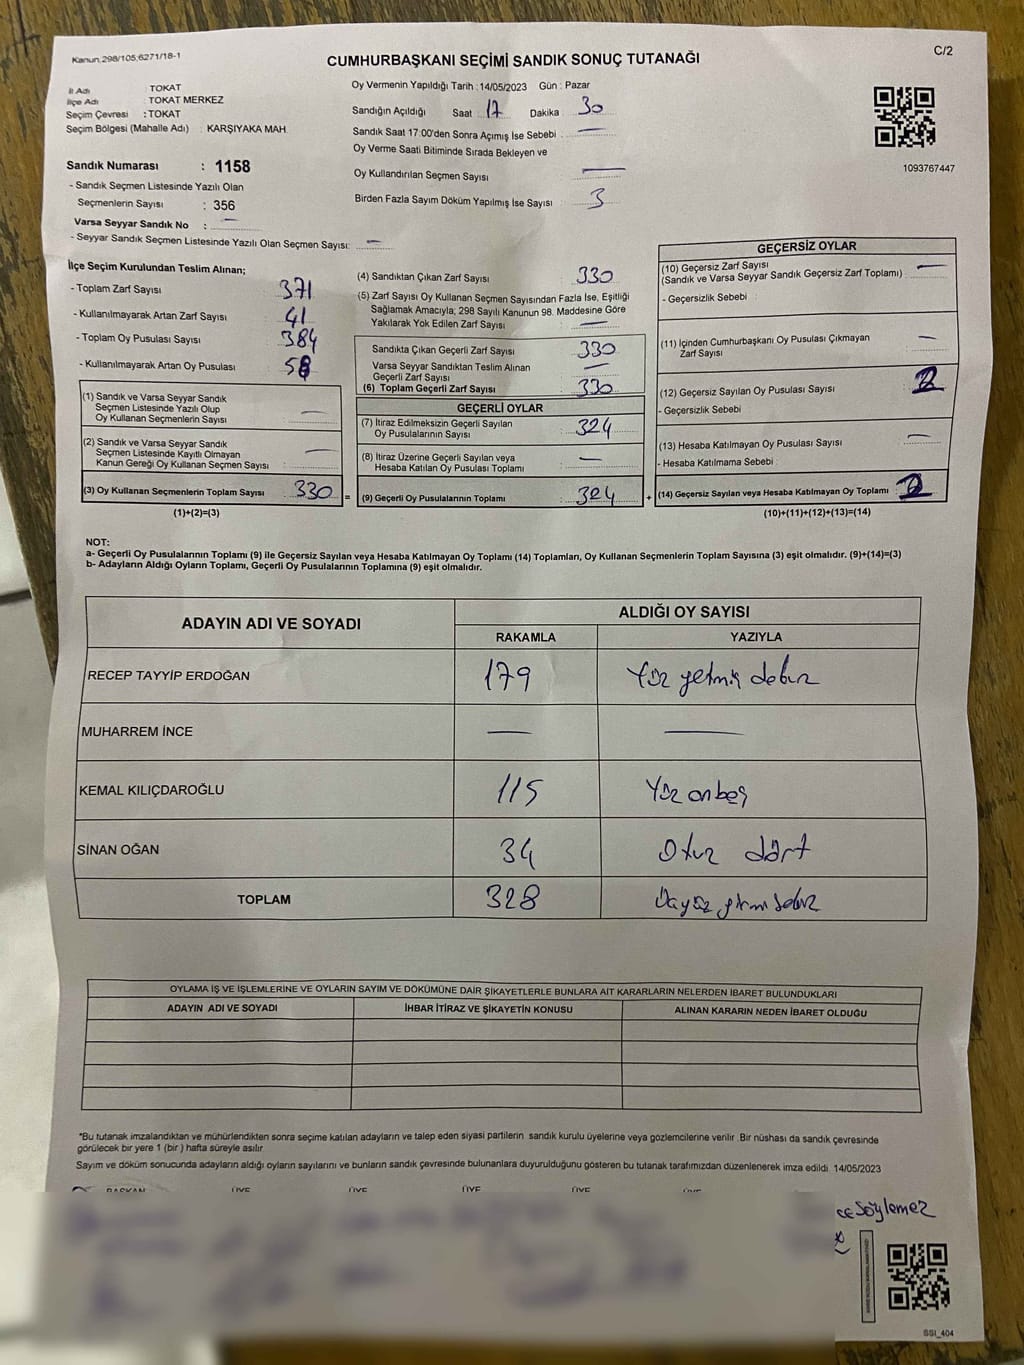 Kanun, 298/105;6271/18-1
CUMHURBAŞKANI SEÇİMİ SANDIK SONUÇ TUTANAĞI
C/2
İl Adı : TOKAT
İlçe Adı : TOKAT MERKEZ
Seçim Çevresi : TOKAT
Seçim Bölgesi (Mahalle Adı) : KARŞIYAKA MAH.
Sandık Numarası : 1158
- Sandık Seçmen Listesinde Yazılı Olan
Seçmenlerin Sayısı : 356
Varsa Seyyar Sandık No : —
- Seyyar Sandık Seçmen Listesinde Yazılı Olan Seçmen Sayısı: —
Oy Vermenin Yapıldığı Tarih : 14/05/2023 Gün : Pazar
Sandığın Açıldığı Saat 17 Dakika 30
Sandık Saat 17:00'den Sonra Açımış İse Sebebi : —
Oy Verme Saati Bitiminde Sırada Bekleyen ve
Oy Kullandırılan Seçmen Sayısı —
Birden Fazla Sayım Döküm Yapılmış İse Sayısı : 3
1093767447
İlçe Seçim Kurulundan Teslim Alınan;
- Toplam Zarf Sayısı 371
- Kullanılmayarak Artan Zarf Sayısı 41
- Toplam Oy Pusulası Sayısı 384
- Kullanılmayarak Artan Oy Pusulası
(1) Sandık ve Varsa Seyyar Sandık
Seçmen Listesinde Yazılı Olup
Oy Kullanan Seçmenlerin Sayısı : —
(2) Sandık ve Varsa Seyyar Sandık
Seçmen Listesinde Kayıtlı Olmayan
Kanun Gereği Oy Kullanan Seçmen Sayısı : —
(3) Oy Kullanan Seçmenlerin Toplam Sayısı : 330 =
(1)+(2)=(3)
(4) Sandıktan Çıkan Zarf Sayısı : 330
(5) Zarf Sayısı Oy Kullanan Seçmen Sayısından Fazla İse, Eşitliği
Sağlamak Amacıyla; 298 Sayılı Kanunun 98. Maddesine Göre
Yakılarak Yok Edilen Zarf Sayısı : —
Sandıkta Çıkan Geçerli Zarf Sayısı : 330
Varsa Seyyar Sandıktan Teslim Alınan
Geçerli Zarf Sayısı : —
(6) Toplam Geçerli Zarf Sayısı : 330
GEÇERLİ OYLAR
(7) İtiraz Edilmeksizin Geçerli Sayılan
Oy Pusulalarının Sayısı : 324
(8) İtiraz Üzerine Geçerli Sayılan veya
Hesaba Katılan Oy Pusulası Toplamı : —
(9) Geçerli Oy Pusulalarının Toplamı : 324 +
GEÇERSİZ OYLAR
(10) Geçersiz Zarf Sayısı
(Sandık ve Varsa Seyyar Sandık Geçersiz Zarf Toplamı) : —
- Geçersizlik Sebebi :
(11) İçinden Cumhurbaşkanı Oy Pusulası Çıkmayan
Zarf Sayısı : —
(12) Geçersiz Sayılan Oy Pusulası Sayısı : 2
- Geçersizlik Sebebi
(13) Hesaba Katılmayan Oy Pusulası Sayısı : —
- Hesaba Katılmama Sebebi :
(14) Geçersiz Sayılan veya Hesaba Katılmayan Oy Toplamı : 2
(10)+(11)+(12)+(13)=(14)
NOT:
a- Geçerli Oy Pusulalarının Toplamı (9) ile Geçersiz Sayılan veya Hesaba Katılmayan Oy Toplamı (14) Toplamları, Oy Kullanan Seçmenlerin Toplam Sayısına (3) eşit olmalıdır. (9)+(14)=(3)
b- Adayların Aldığı Oyların Toplamı, Geçerli Oy Pusulalarının Toplamına (9) eşit olmalıdır.
ADAYIN ADI VE SOYADI
ALDIĞI OY SAYISI
RAKAMLA YAZIYLA
RECEP TAYYİP ERDOĞAN 179 Yüz yetmiş dokuz
MUHARREM İNCE — —
KEMAL KILIÇDAROĞLU 115 Yüz onbeş
SİNAN OĞAN 34 Otuz dört
TOPLAM 328 Üçyüz yirmi sekiz
OYLAMA İŞ VE İŞLEMLERİNE VE OYLARIN SAYIM VE DÖKÜMÜNE DAİR ŞİKAYETLERLE BUNLARA AİT KARARLARIN NELERDEN İBARET BULUNDUKLARI
ADAYIN ADI VE SOYADI İHBAR İTİRAZ VE ŞİKAYETİN KONUSU ALINAN KARARIN NEDEN İBARET OLDUĞU
*Bu tutanak imzalandıktan ve mühürlendikten sonra seçime katılan adayların ve talep eden siyasi partilerin sandık kurulu üyelerine veya gözlemcilerine verilir. Bir nüshası da sandık çevresinde
görülecek bir yere 1 (bir) hafta süreyle asılır.
Sayım ve döküm sonucunda adayların aldığı oyların sayılarını ve bunların sandık çevresinde bulunanlara duyurulduğunu gösteren bu tutanak tarafımızdan düzenlenerek imza edildi. 14/05/2023
BAŞKAN ÜYE ÜYE ÜYE ÜYE
Söylemez
SSI_404